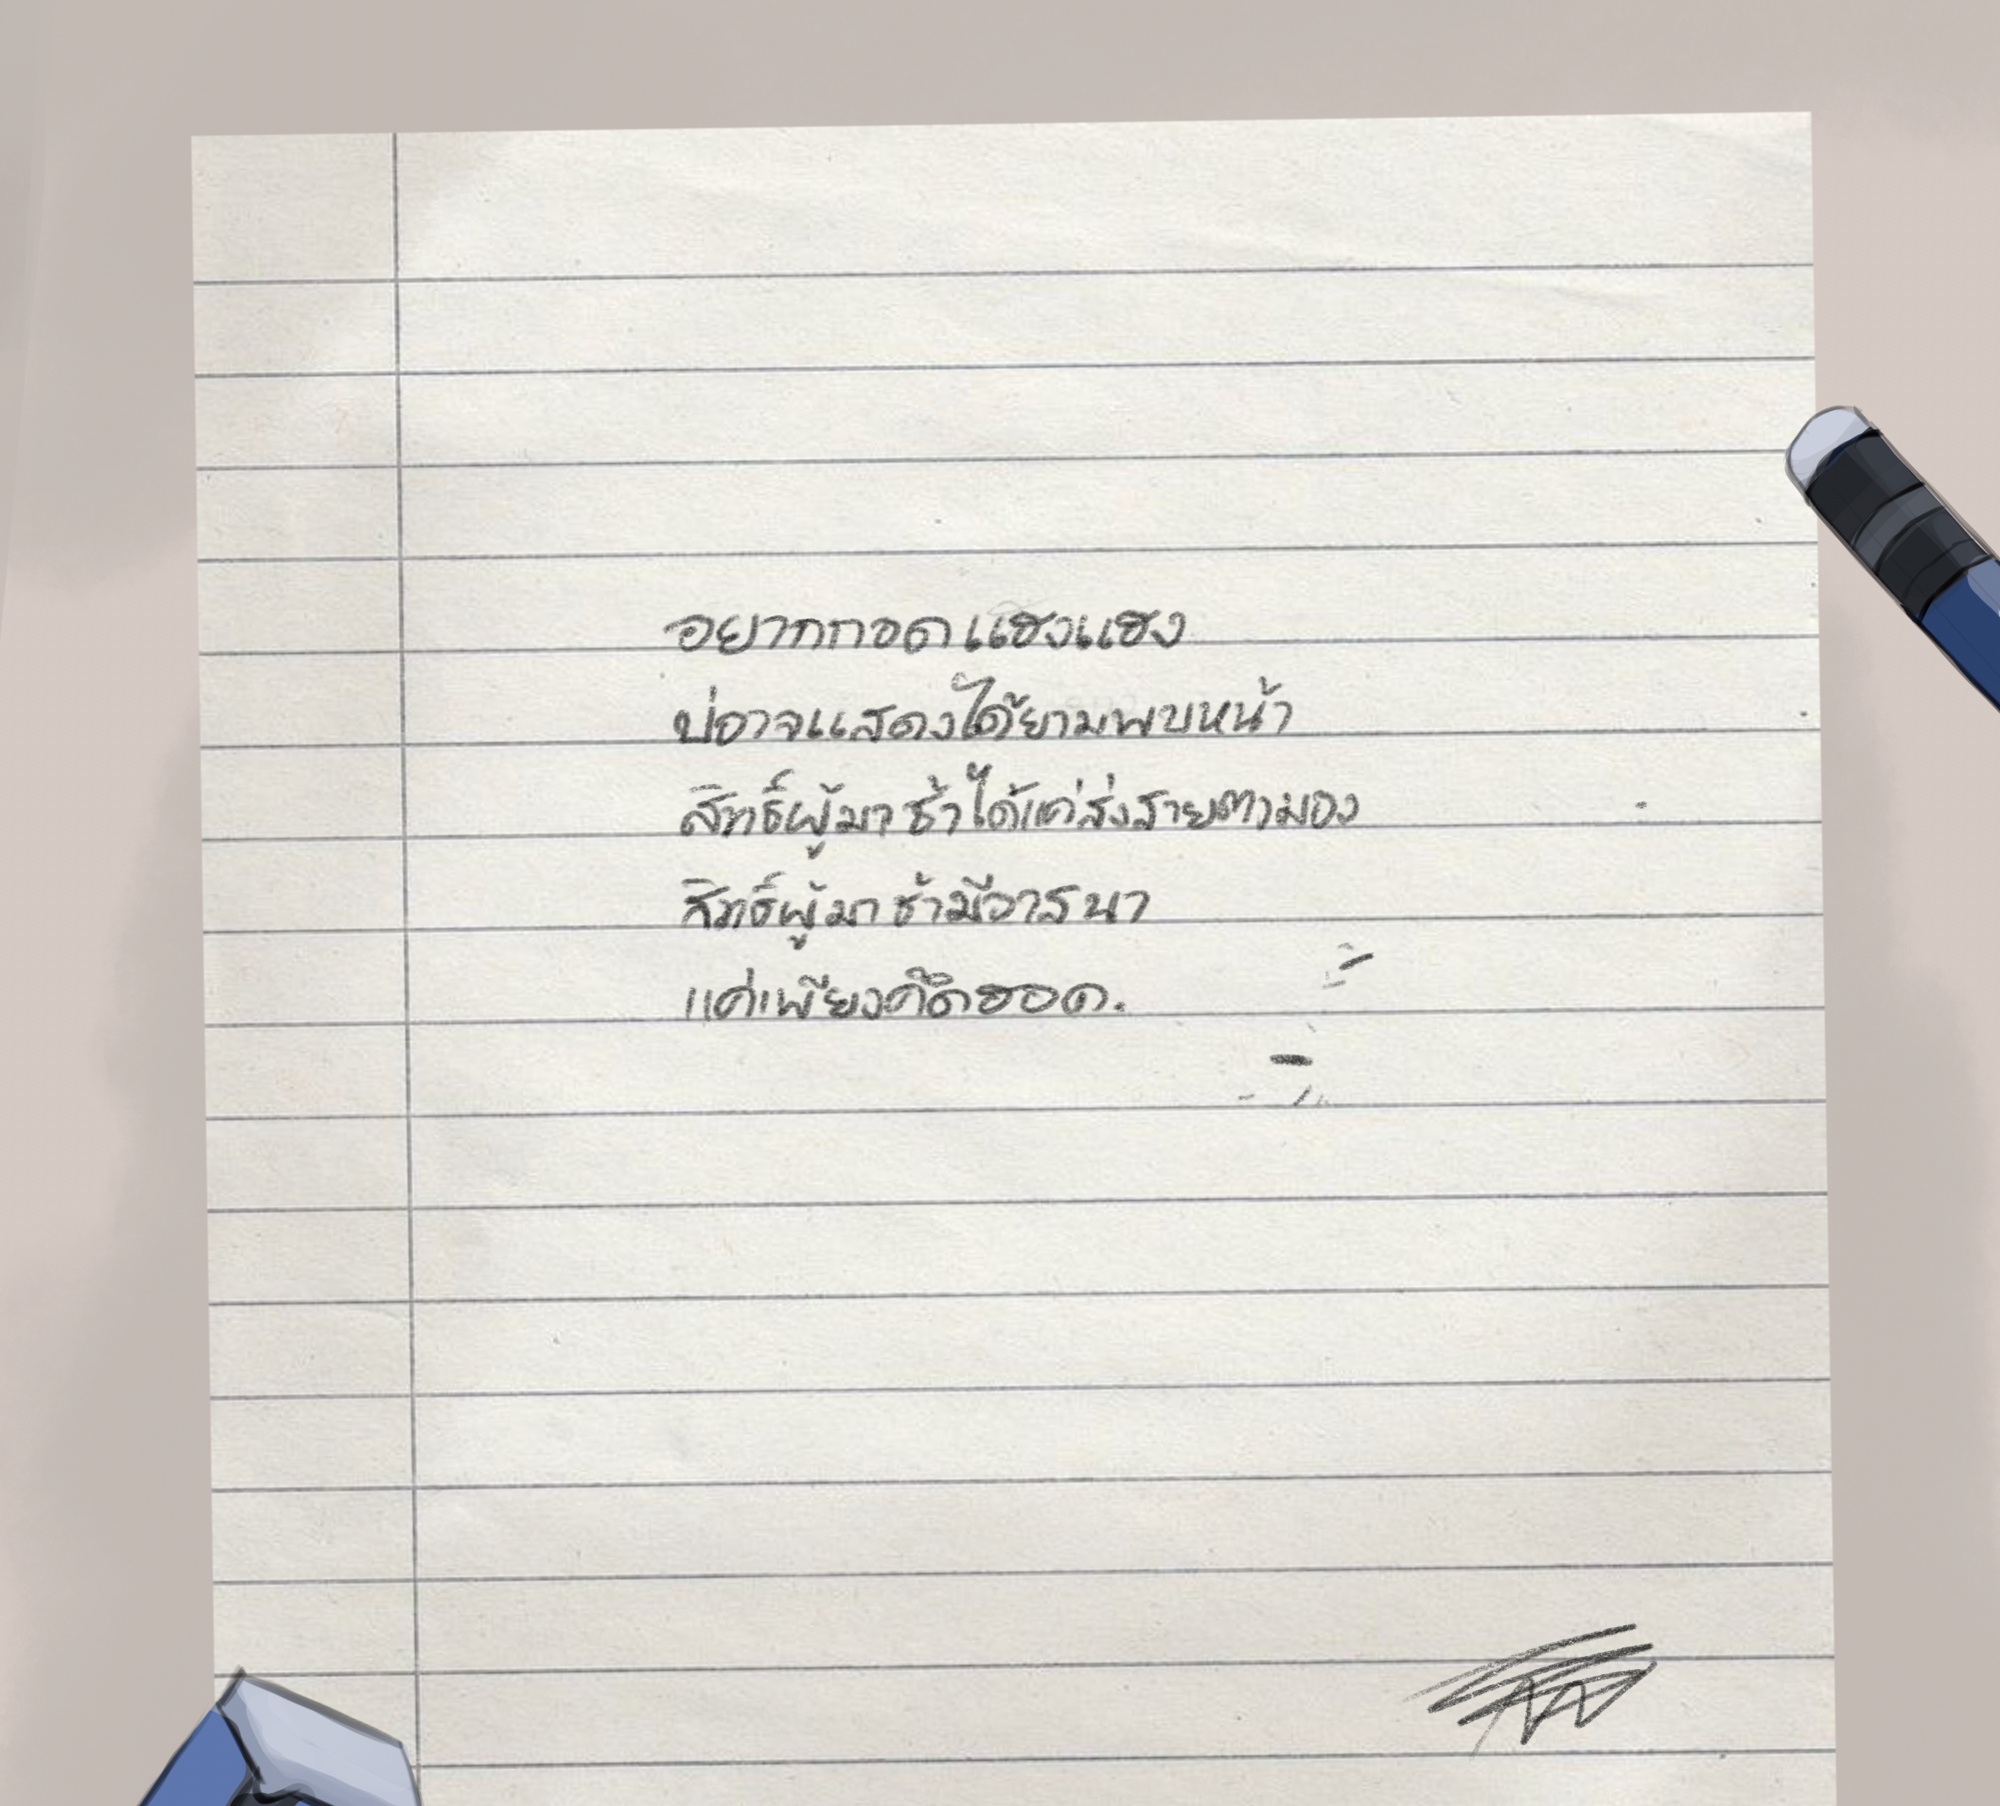 อยากกอดแฮงแฮง
บ่อาจแสดงได้ยามพบหน้า
สิทธิ์ผู้มาช้าได้แค่ส่งสายตามอง
สิทธิ์ผู้มาช้ามีวาสนา
แค่เพียงคึดฮอด.